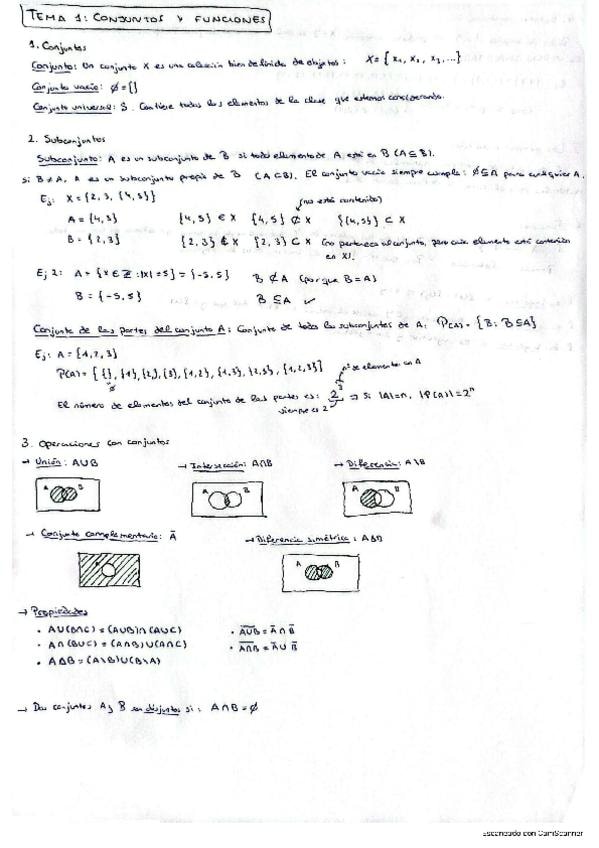 TEMA 1: CONJUNTOS Y FUNCIONES
1. Conjuntos
Conjunto: Un conjunto X es una colección bien definida de objetos: X = { x₁, x₂, x₃, ...}
Conjunto vacío: ∅ = {}
Conjunto universal: S. Contiene todos los elementos de la clase que estemos considerando.
2. Subconjuntos
Subconjunto: A es un subconjunto de B si todo elemento de A está en B (A ⊆ B).
Si B ≠ A, A es un subconjunto propio de B (A ⊂ B). El conjunto vacío siempre cumple: ∅ ⊆ A para cualquier A.
(no está contenido)
Ej: X = {2, 3, {4, 5}}
A = {4, 5} {4, 5} ∈ X {4, 5} ⊄ X {{4, 5}} ⊂ X
B = {2, 3} {2, 3} ∉ X {2, 3} ⊂ X (no pertenece al conjunto, pero cada elemento está contenido
en X).
Ej 2: A = {x ∈ ℤ : |x| = 5} = {-5, 5} B ⊄ A (porque B = A)
B = {-5, 5} B ⊆ A ✓
Conjunto de las partes del conjunto A: Conjunto de todos los subconjuntos de A: P(A) = {B : B ⊆ A}
Ej: A = {1, 2, 3}
P(A) = { {}, {1}, {2}, {3}, {1, 2}, {1, 3}, {2, 3}, {1, 2, 3}}
∅
nº de elementos en A
El número de elementos del conjunto de las partes es: 2³ ⇒ Si |A| = n, |P(A)| = 2ⁿ
siempre es 2
3. Operaciones con conjuntos
→ Unión: A ∪ B → Intersección: A ∩ B → Diferencia: A \ B
A B A B A B
→ Conjunto complementario: Ā → Diferencia simétrica: A Δ B
A A B
→ Propiedades
• A ∪ (B ∩ C) = (A ∪ B) ∩ (A ∪ C) • A̅∪̅B̅ = Ā ∩ B̅
• A ∩ (B ∪ C) = (A ∩ B) ∪ (A ∩ C) • A̅∩̅B̅ = Ā ∪ B̅
• A Δ B = (A \ B) ∪ (B \ A)
→ Dos conjuntos A y B son disjuntos si: A ∩ B = ∅
Escaneado con CamScanner